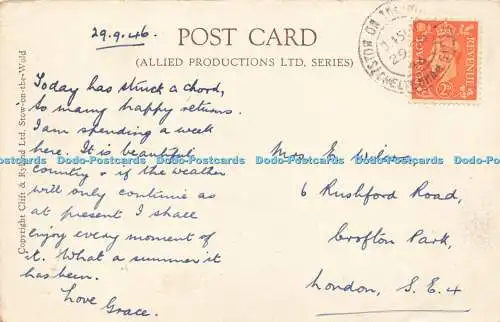 29.9.46.
POST CARD
(ALLIED PRODUCTIONS LTD. SERIES)
Today has struck a chord,
so many happy returns.
I am spending a week
here. It is beautiful
country & if the weather
will only continue as
at present I shall
enjoy every moment of
it. What a summer it
has been.
Love Grace.
Copyright Clift & Ryland Ltd. Stow-on-the-Wold
Mrs G. Wilson
6 Rushford Road,
Crofton Park,
London, S.E.4
POSTAGE
REVENUE
STOW ON THE WOLD
29
CHELTENHAM
Dodo-Postcards Dodo-Postcards Dodo-Postcards Dodo-Postcards Dodo-Postcards